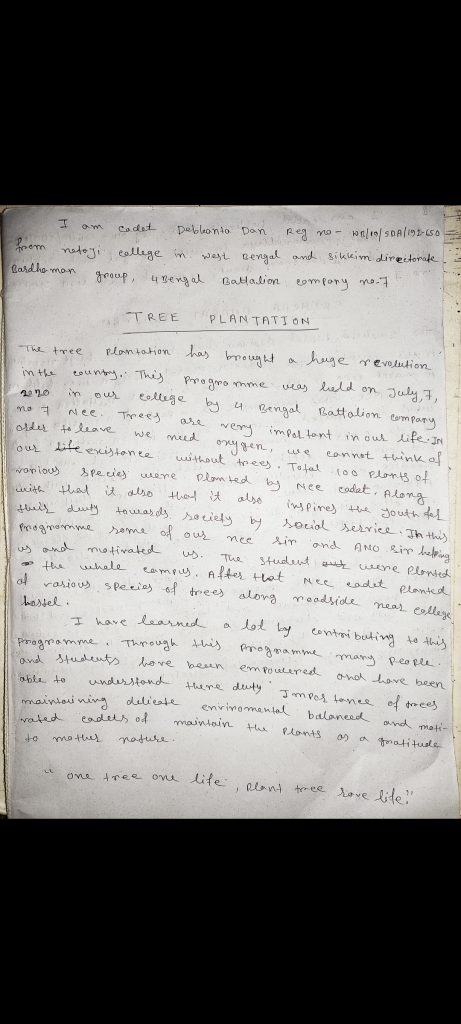 I am cadet Debkanta Dan Reg no - WB/19/SDA/192650
from netaji college in west Bengal and sikkim directorate
Bardhaman group, 4 Bengal Battalion company no-7
TREE PLANTATION
The tree plantation has brought a huge revolution
in the country. This Programme was held on July, 7,
2020 in our college by 4 Bengal Battalion company
no 7 Ncc. Trees are very important in our life. IN
order to leave we need oxygen, we cannot think of
our life existance without trees. Total 100 plants of
various species were planted by Ncc cadet. Along
with that it also that it also inspires the youth for
their duty towards society by social service. In this
Programme some of our ncc sir and ANO sir helping
us and motivated us. The student were Planted
the whole campus. After that Ncc cadet planted
of various species of trees along roadside near college
hostel.
I have learned a lot by contributing to this
programme. Through this programme many people
and students have been empowered and have been
able to understand there duty. Importance of trees
maintaining delicate enviromental balanced and moti-
vated cadets of maintain the plants as a gratitude
to mother nature.
"one tree one life, plant tree save life."